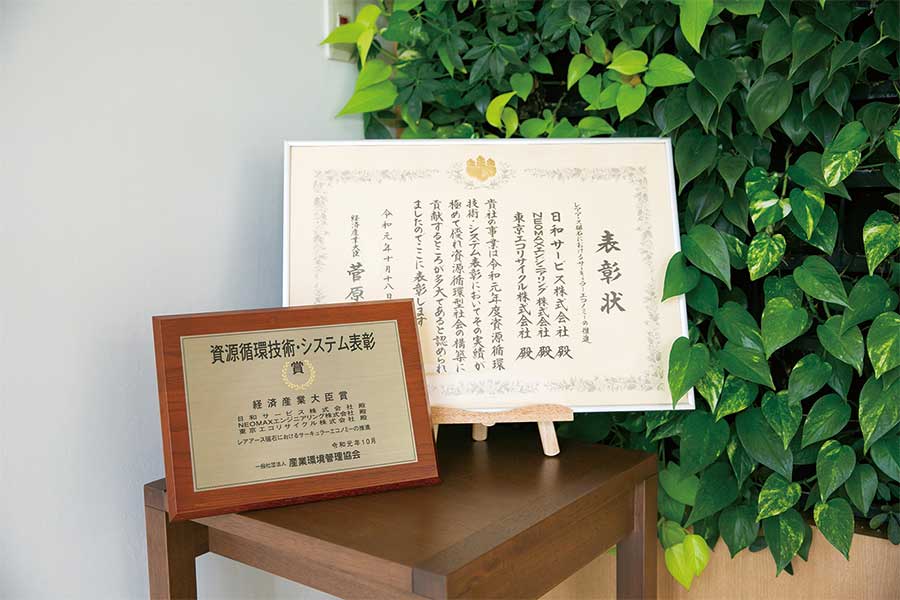 表彰状
レアアース磁石におけるサーキュラーエコノミーの推進
日和サービス株式会社 殿
NEOMAXエンジニアリング株式会社 殿
東京エコリサイクル株式会社 殿
貴社の事業は令和元年度資源循環
技術・システム表彰においてその実績が
極めて優れ資源循環型社会の構築に
貢献するところが多大であると認められ
ましたのでここに表彰します
令和元年十月十八日
経済産業大臣 菅原
資源循環技術・システム表彰
賞
経済産業大臣賞
日和サービス株式会社殿
NEOMAXエンジニアリング株式会社殿
東京エコリサイクル株式会社殿
レアアース磁石におけるサーキュラーエコノミーの推進
令和元年10月
一般社団法人 産業環境管理協会